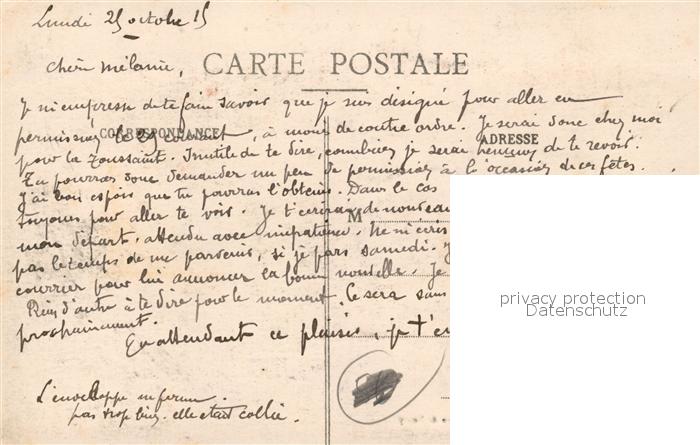 Lundi 25 octobre 15
Chère Mélanie,
CARTE POSTALE
Je m'empresse de te faire savoir que je suis désigné pour aller en
permission le 29 courant, à moins de contre ordre. Je serai donc chez moi
CORRESPONDANCE
ADRESSE
pour la Toussaint. Inutile de te dire, combien je serai heureux de te revoir.
Tu pourras donc demander un peu de permission à l'occasion de ces fêtes.
J'ai bon espoir que tu pourras l'obtenir. Dans le cas
toujours pour aller te voir. Je t'écrirai de nouveau
M
mon départ. attendu avec impatience. Ne m'écris
pas le temps de me parvenir, si je pars samedi.
courrier pour lui annoncer la bonne nouvelle. Je
Rien d'autre à te dire pour le moment. Ce sera sans
prochainement.
En attendant ce plaisir, je t'em
L'enveloppe
pas trop bien. elle était collée.
privacy protection
Datenschutz